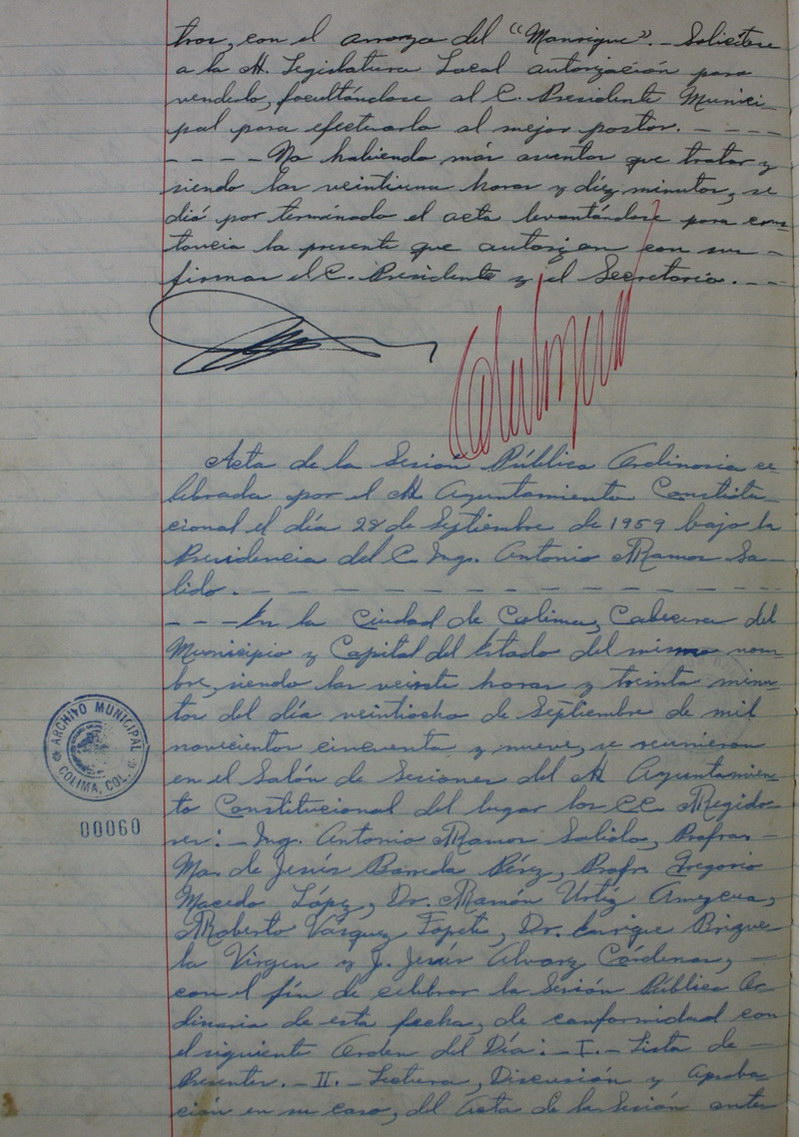 tros, con el arroyo del "Manrique".- Solicítese
a la H. Legislatura Local autorización para
venderlo, facultándose al C. Presidente Munici-
pal para efectuarlo al mejor postor. - - - -
- - - - No habiendo más asuntos que tratar y
siendo las veintiuna horas y diez minutos, se
dió por terminado el acta levantándose para cons
tancia la presente que autorizan con sus -
firmas el C. Presidente y el Secretario. - -
Acta de la Sesión Pública Ordinaria ce-
lebrada por el H Ayuntamiento Constitu-
cional el día 28 de Septiembre de 1959 bajo la
Presidencia del C Ing. Antonio Ramos Sa-
lido. - - - - - - - - - - - - - -
- - - En la Ciudad de Colima, Cabecera del
Municipio y Capital del Estado del mismo nom-
bre, siendo las veinte horas y treinta minu-
tos del día veintiocho de Septiembre de mil
novecientos cincuenta y nueve, se reunieron
en el Salón de Sesiones del H Ayuntamien-
to Constitucional del lugar los CC Regido-
res:- Ing. Antonio Ramos Salido, Profra. -
Ma. de Jesús Barreda Pérez, Profr. Gregorio
Macedo López, Dr. Ramón Urtíz Amezcua,
Roberto Vásquez Topete, Dr. Enrique Brizue-
la Virgen y J. Jesús Alvarez Cárdenas, -
con el fin de celebrar la Sesión Pública Or-
dinaria de esta fecha, de conformidad con
el siguiente Orden del Día:- I.- Lista de -
Presentes.- II.- Lectura, Discusión y Aproba-
ción en su caso, del Acta de la Sesión anter
ARCHIVO MUNICIPAL
COLIMA, COL.
00060